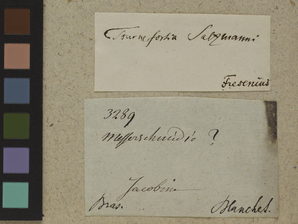 Tournefortia Salzmanni
Fresenius
3289
Messerschmidia ?
Jacobina
Bras. Blanchet.